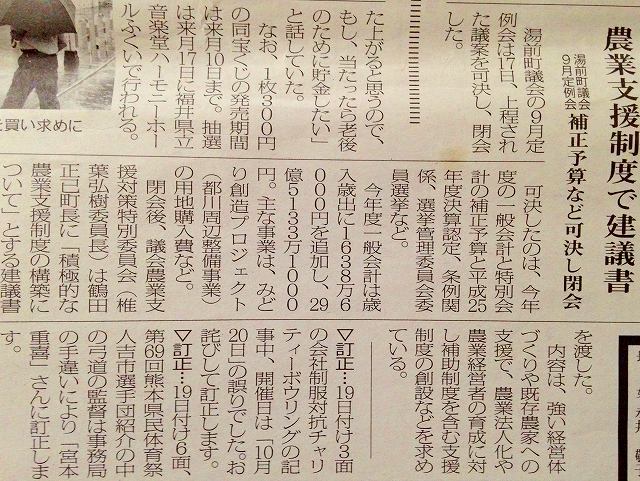 農業支援制度で建議書
湯前町議会
9月定例会
補正予算など可決し閉会
湯前町議会の9月定
例会は17日、上程され
た議案を可決し、閉会
した。
可決したのは、今年
度の一般会計と特別会
計の補正予算と平成25
年度決算認定、条例関
係、選挙管理委員会委
員選挙など。
今年度一般会計は歳
入歳出に1638万6
000円を追加し、29
億5133万1000
円。主な事業は、みど
り創造プロジェクト
(都川周辺整備事業)
の用地購入費など。
閉会後、議会農業支
援対策特別委員会(椎
葉弘樹委員長)は鶴田
正已町長に「積極的な
農業支援制度の構築に
ついて」とする建議書
を渡した。
内容は、強い経営体
づくりや既存農家への
支援で、農業法人化や
農業経営者の育成に対
し補助制度を含む支援
制度の創設などを求め
ている。
た上がると思うので、
もし、当たったら老後
のために貯金したい」
と話していた。
なお、1枚300円
の同宝くじの発売期間
は来月10日まで。抽選
は来月17日に福井県立
音楽堂ハーモニーホー
ルふくいで行われる。
を買い求めに
▽訂正…19日付け3面
の会社制服対抗チャリ
ティーボウリングの記
事中、開催日は「10月
20日」の誤りでした。お
詫びして訂正します。
▽訂正…19日付け6面、
第69回熊本県民体育祭
人吉市選手団紹介の中
の弓道の監督は事務局
の手違いにより「宮本
重喜」さんに訂正しま
す。